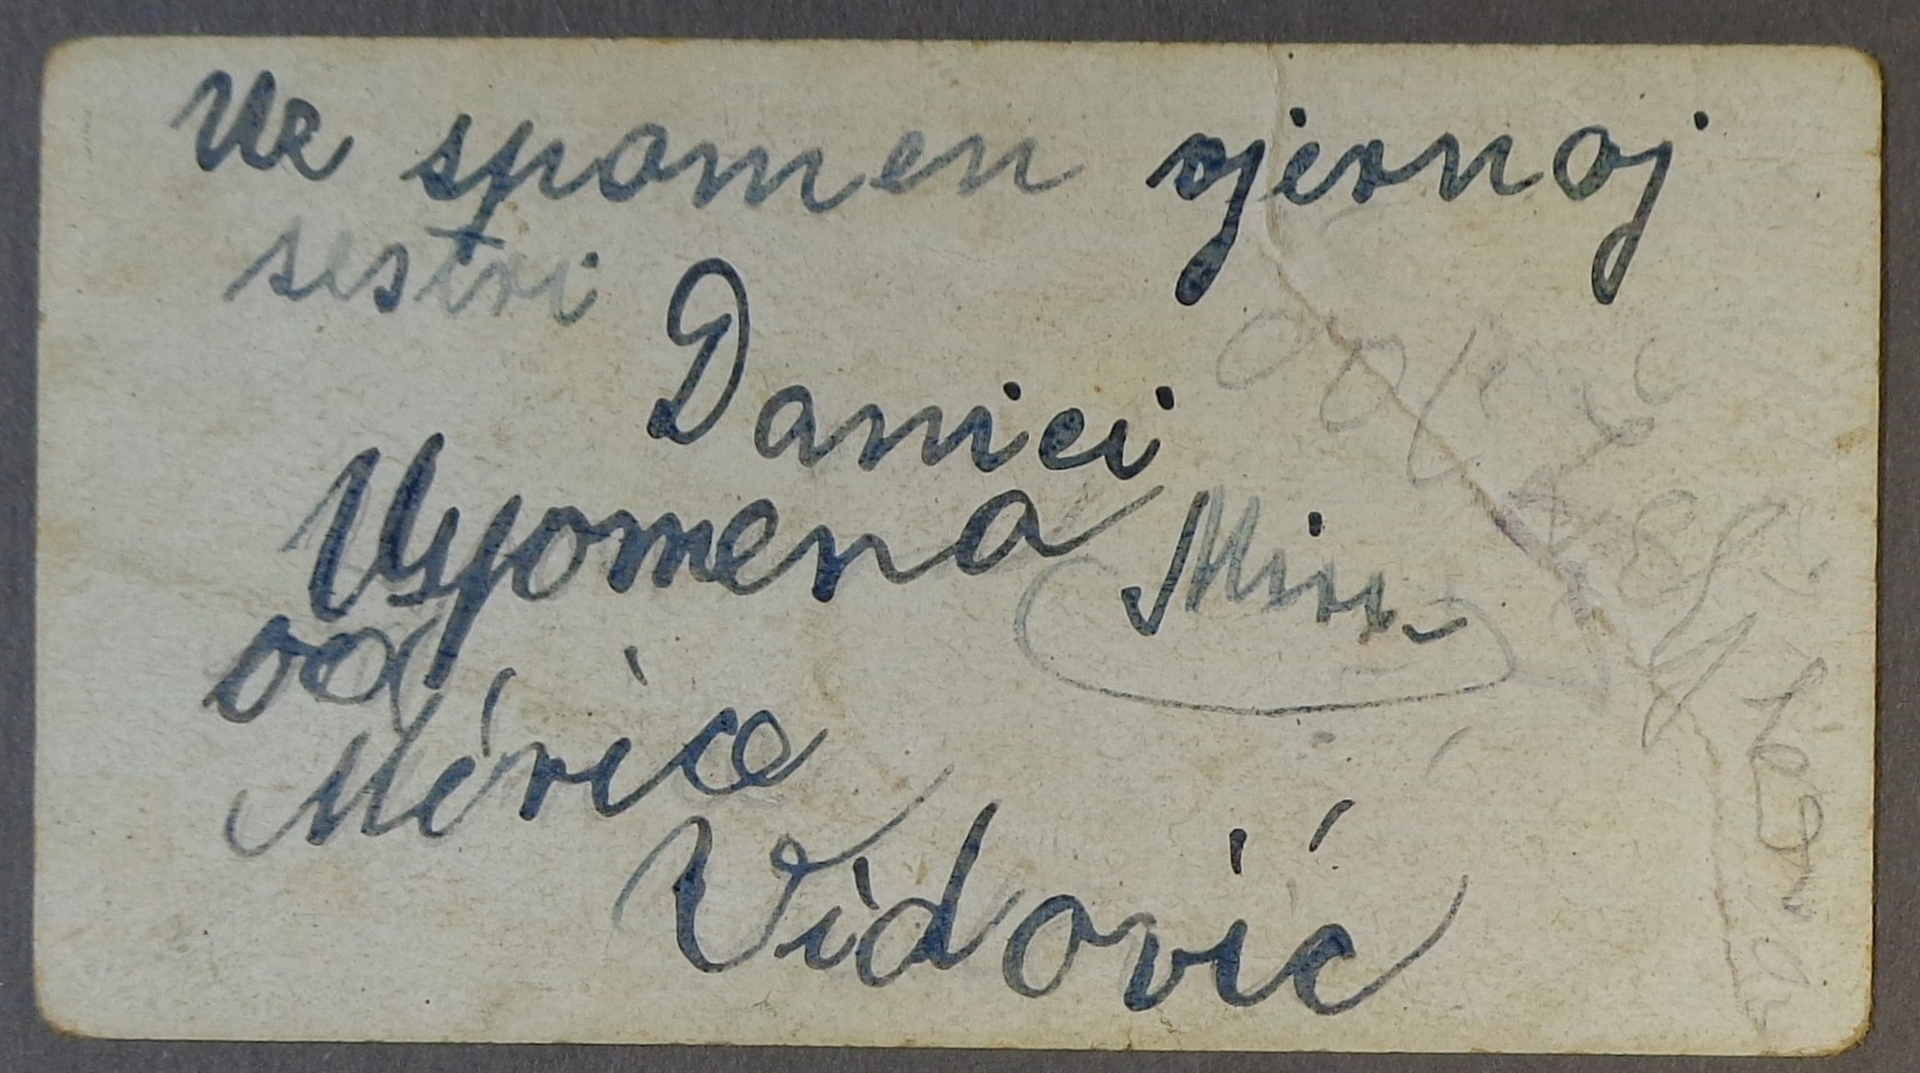 Ue spomen vjernoj
sestri
Danici
Uspomena Mira
od
Mirice
Vidović